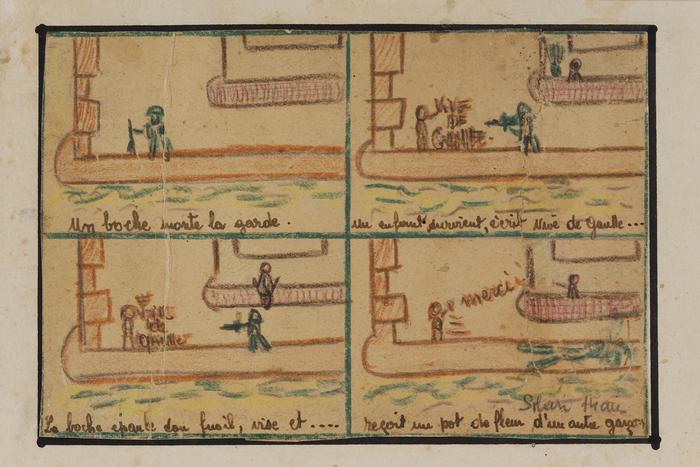 Un boche monte la garde.
VIVE
DE
GAULLE.
un enfant survient, écrit Vive de Gaulle...
Vive
de
Gaulle
Le boche épaule son fusil, vise et ....
merci!
reçoit un pot de fleur d'un autre garçon